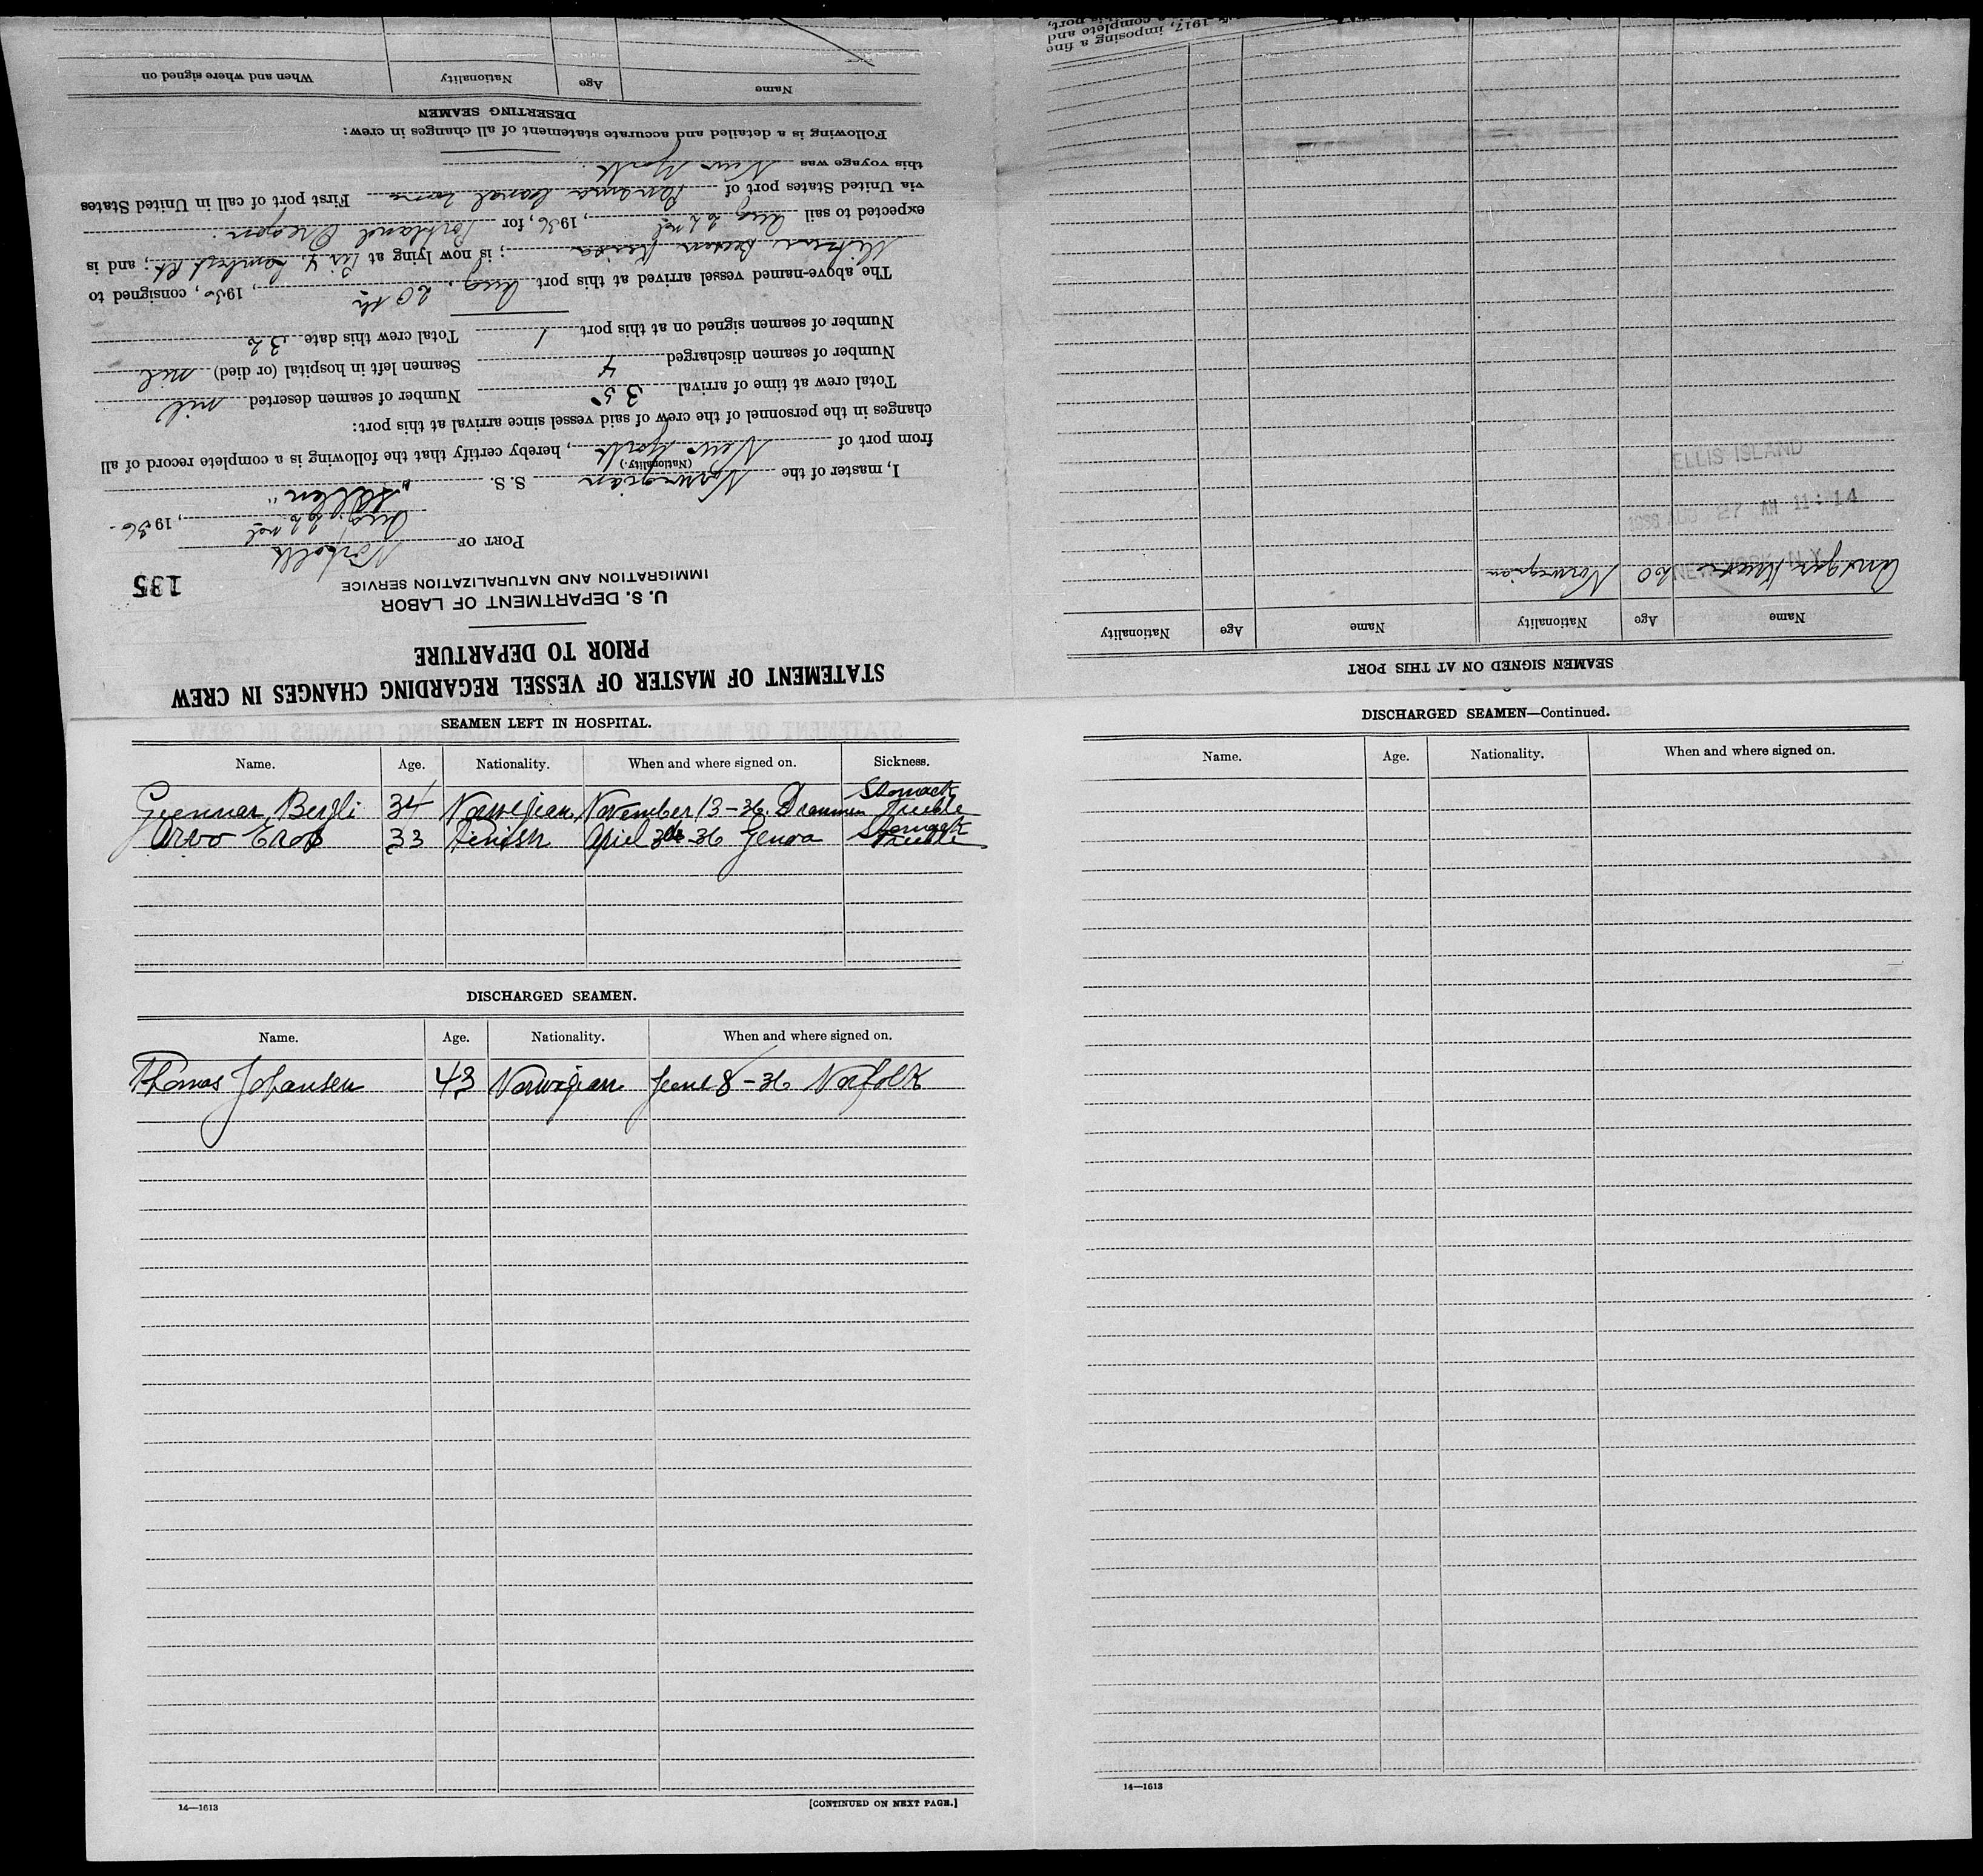 STATEMENT OF MASTER OF VESSEL REGARDING CHANGES IN CREW
PRIOR TO DEPARTURE
U. S. DEPARTMENT OF LABOR
IMMIGRATION AND NATURALIZATION SERVICE
135
PORT OF Norfolk
Aug. 22nd, 1936.
I, master of the Norwegian S. S.
(Nationality.)
from port of New York, hereby certify that the following is a complete record of all
changes in the personnel of the crew of said vessel since arrival at this port:
Total crew at time of arrival 35 Number of seamen deserted nil
Number of seamen discharged 4 Seamen left in hospital (or died) nil
Number of seamen signed on at this port 1 Total crew this date 32
The above-named vessel arrived at this port Aug. 20th, 1936, consigned to
; is now lying at Pier 4, Lamberts Pt.; and is
expected to sail Aug 22nd, 1936, for Portland Oregon.
via United States port of Panama Canal Zone First port of call in United States
this voyage was New York.
Following is a detailed and accurate statement of all changes in crew:
DESERTING SEAMEN
Name Age Nationality When and where signed on
SEAMEN SIGNED ON AT THIS PORT
Name Age Nationality Name Age Nationality
20 Norwegian
NEW YORK, N.Y.
27 AM 11:14
ELLIS ISLAND
1917, imposing a fine
complete and
port,
SEAMEN LEFT IN HOSPITAL.
Name. Age. Nationality. When and where signed on. Sickness.
Gunnar Bergli 34 Norwegian November 13-36. Drammen Stomack Truble
Arvo 33 Finish April 3de-36 Genoa Stomack Truble
DISCHARGED SEAMEN.
Name. Age. Nationality. When and where signed on.
Thomas Johansen 43 Norwegian June 8-36 Norfolk
14—1613
[CONTINUED ON NEXT PAGE.]
DISCHARGED SEAMEN—Continued.
Name. Age. Nationality. When and where signed on.
14—1613